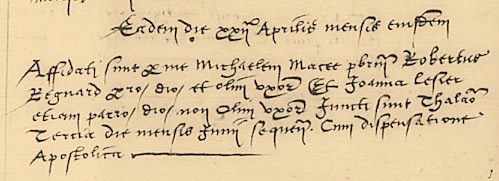 Eadem die xxij Aprilis mensis eiusdem
Affidati sunt per me Michaelem Macee pbrm Robertus
Regnard et olim uxor Et Joanna Lester
etiam non olim uxor Juncti sunt Thalamo
Tercia die mensis Junij sequen. Cum dispensatione
Apostolica